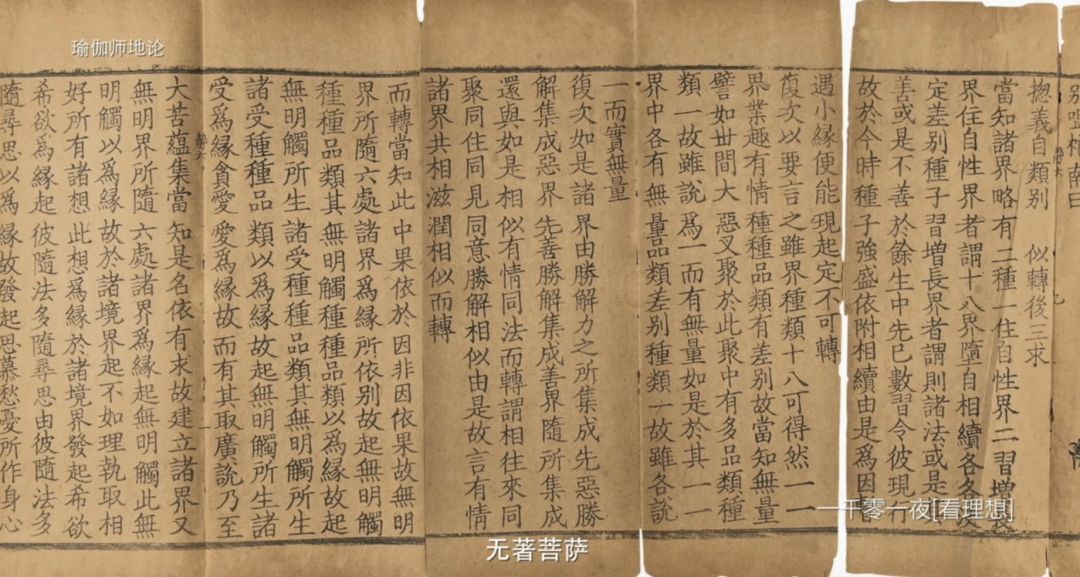 瑜伽师地论
南曰
摠義自類別　似轉後三求
當知諸界略有二種一住自性界二習增長
界住自性界者謂十八界墮自相續各各
定差別種子習增長界者謂則諸法或是
善或是不善於餘生中先已數習令彼現行
故於今時種子強盛依附相續由是爲因
遇小緣便能現起定不可轉
復次以要言之雖界種類十八可得然一一
界業趣有情種種品類有差別故當知無量
譬如世間大惡叉聚於此聚中有多品類種
類一故雖說爲一而有無量如是於其一一
界中各有無量品類差別種類一故雖各說
一而實無量
復次如是諸界由勝解力之所集成先惡勝
解集成惡界先善勝解集成善界隨所集成
還與如是相似有情同法而轉謂相往來同
聚同住同見同意勝解相似由是故言有情
諸界共相滋潤相似而轉
而轉當知此中果依於因非因依果故無明
界所隨六處諸界爲緣所依别故起無明觸
種種品類其無明觸種種品類以爲緣故起
無明觸所生諸受種種品類其無明觸所生
諸受種種品類以爲緣故起無明觸所生諸
受爲緣貪愛愛爲緣故而有其取廣說乃至
大苦蘊集當知是名依有求故建立諸界又
無明界所隨六處諸界爲緣起無明觸此無
明觸以爲緣故於諸境界起不如理執取相
好所有諸想此想爲緣於諸境界發起希欲
希欲爲緣起彼隨法多隨尋思由彼隨法多
隨尋思以爲緣故發起思慕愁憂所作身心
一千零一夜[看理想]
无著菩萨